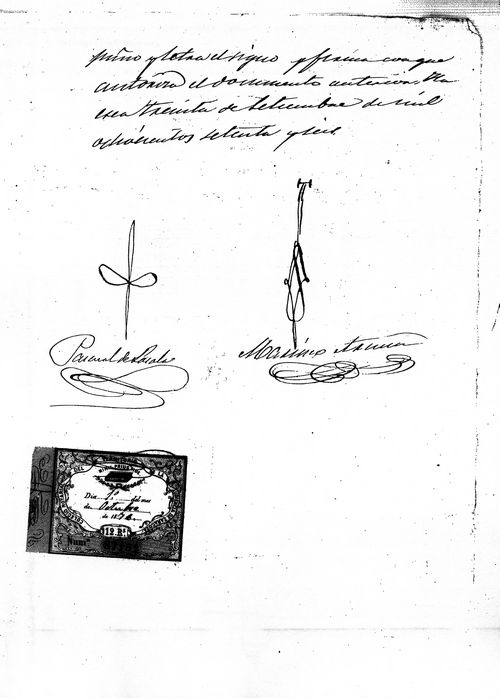 puño y letra el signo y firma con que
autoriza el documento anterior. Hu
esca treinta de Setiembre de mil
ochocientos setenta y seis
Pascual de Lasala
Mariano
Dia 1º del mes
de Octubre
de 1876